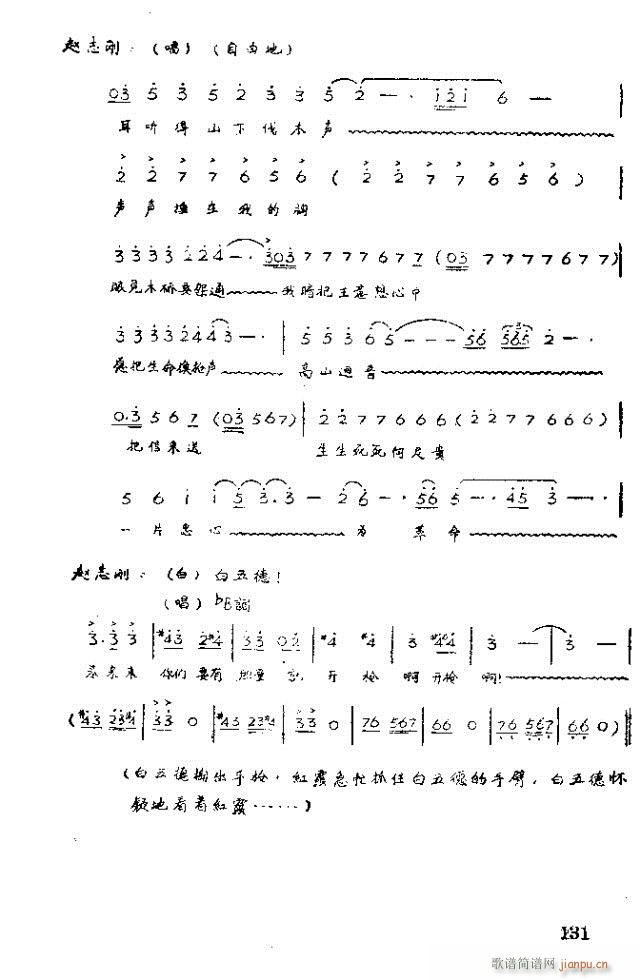 赵志刚：（唱）（自由地）
03 5 3 5 2 3 3 5 2 — · 1 2 1 6 —
耳听得山下伐木声
2 2 7 7 6 5 6 ( 2 2 7 7 6 5 6 )
声声撞在我的胸
3 3 3 3 2 2 4 — · 3 0 3 7 7 7 7 6 7 7 (0 3 7 7 7 7 6 7 7)
眼见木桥要 通 我 把王 心中
3 3 3 3 2 4 4 3 — · | 5 5 3 6 5 — — — 5 6 5 6 5 2 — ·
愿把生命换枪声 高山 音
0· 3 5 6 7 (0 3 5 6 7) | 2 2 7 7 6 6 6 (2 2 7 7 6 6 6)
把信来送 生生死死何足贵
5 6 i i 5 3 · 3 — 2 6 — · 5 6 5 — · 4 5 3 —
一片忠心 为 革命
赵志刚：（白）白五德！
（唱）bE调
3 · 3 3 | #4 3 2 #4 | 3 3 0 2 | #4 | #4 | 3 #4 4 | 3 — | 3 —
来来来 你们要有 开 枪 啊开枪 啊！
(#4 3 2 3 #4 | 3 3 0 | #4 3 2 3 #4 | 3 3 0 | 7 6 5 6 7 | 6 6 0 | 7 6 5 6 7 | 6 6 0)
（白五德掏出手枪，红霞急忙抓住白五德的手臂，白五德怀
疑地看着红霞……）
131
歌谱简谱网 jianpu.cn